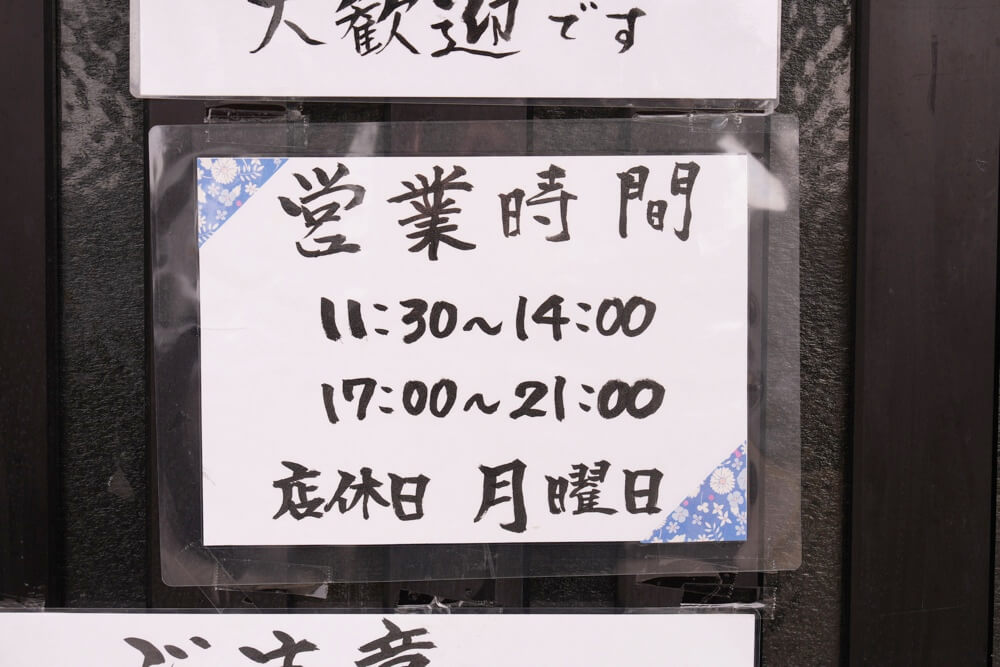 大歓迎です
営業時間
11:30～14:00
17:00～21:00
店休日 月曜日
ご注意